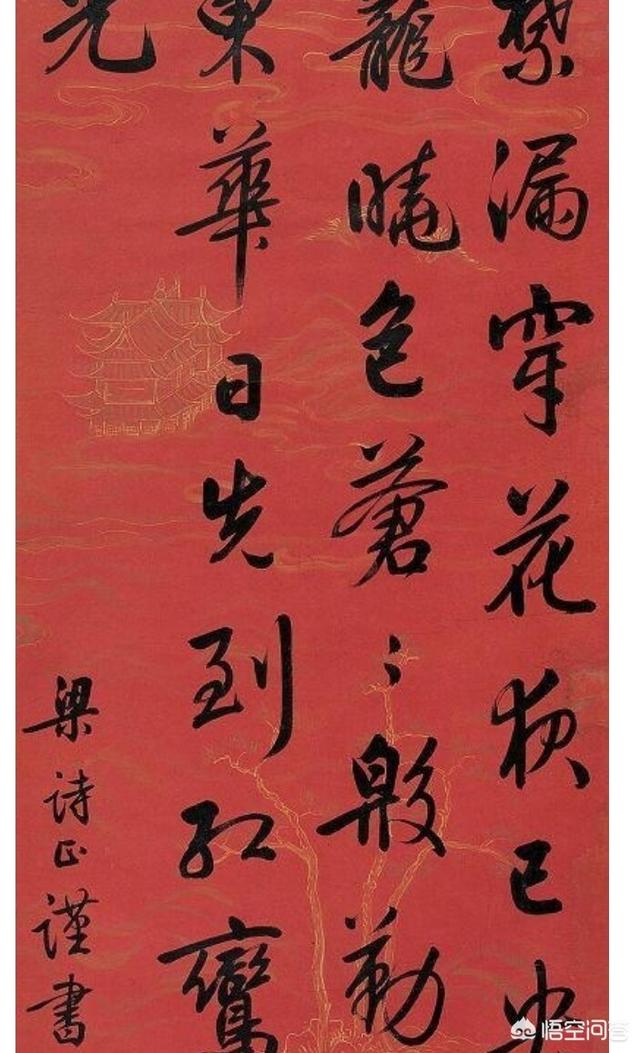 禁漏穿花夜已
龍曉色蒼〻殷勤
東華日先到紅
光
梁詩正謹書
悟空问答